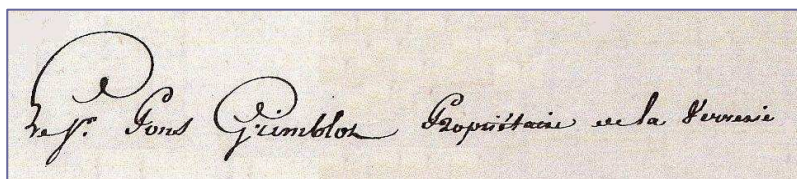 Le Sr. Pons Grimblot Propriétaire de la Verrerie